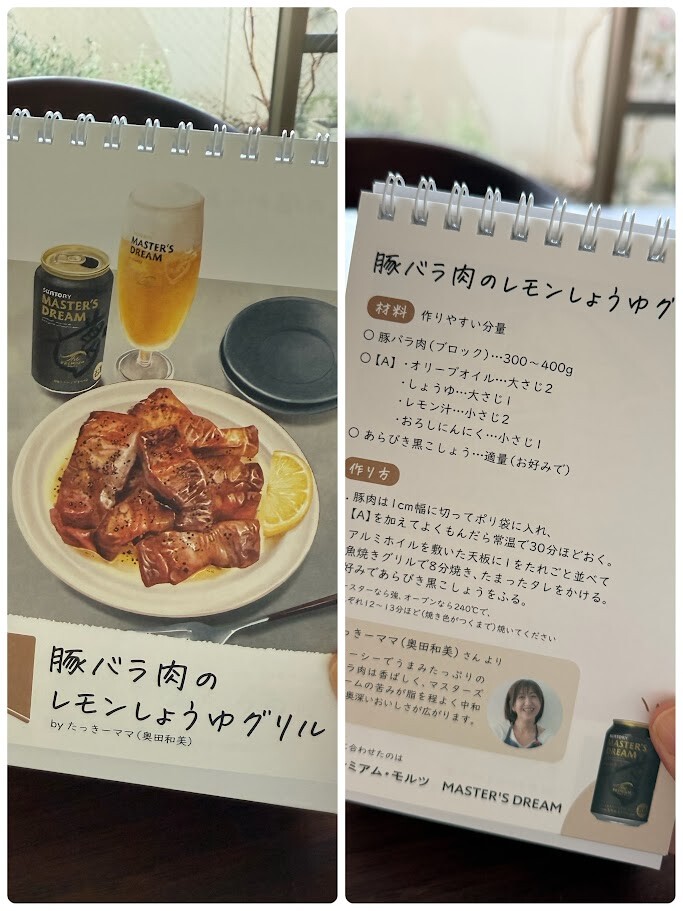 SUNTORY
MASTER'S
DREAM
MASTER'S
DREAM
豚バラ肉の
レモンしょうゆグリル
by たっきーママ(奥田和美)
豚バラ肉のレモンしょうゆグ
材料 作りやすい分量
○ 豚バラ肉(ブロック)…300〜400g
○【A】・オリーブオイル…大さじ2
・しょうゆ…大さじ1
・レモン汁…小さじ2
・おろしにんにく…小さじ1
○ あらびき黒こしょう…適量(お好みで)
作り方
. 豚肉は1cm幅に切ってポリ袋に入れ、
【A】を加えてよくもんだら常温で30分ほどおく。
アルミホイルを敷いた天板に1をたれごと並べて
魚焼きグリルで8分焼き、たまったタレをかける。
好みであらびき黒こしょうをふる。
ースターなら強、オーブンなら240℃で、
ぞれ12〜13分ほど(焼き色がつくまで)焼いてください
っきーママ(奥田和美)さんより
ーシーでうまみたっぷりの
ラ肉は香ばしく、マスターズ
ームの苦みが脂を程よく中和
奥深いおいしさが広がります。
に合わせたのは
ミアム・モルツ MASTER'S DREAM
SUNTORY
MASTER'S
DREAM